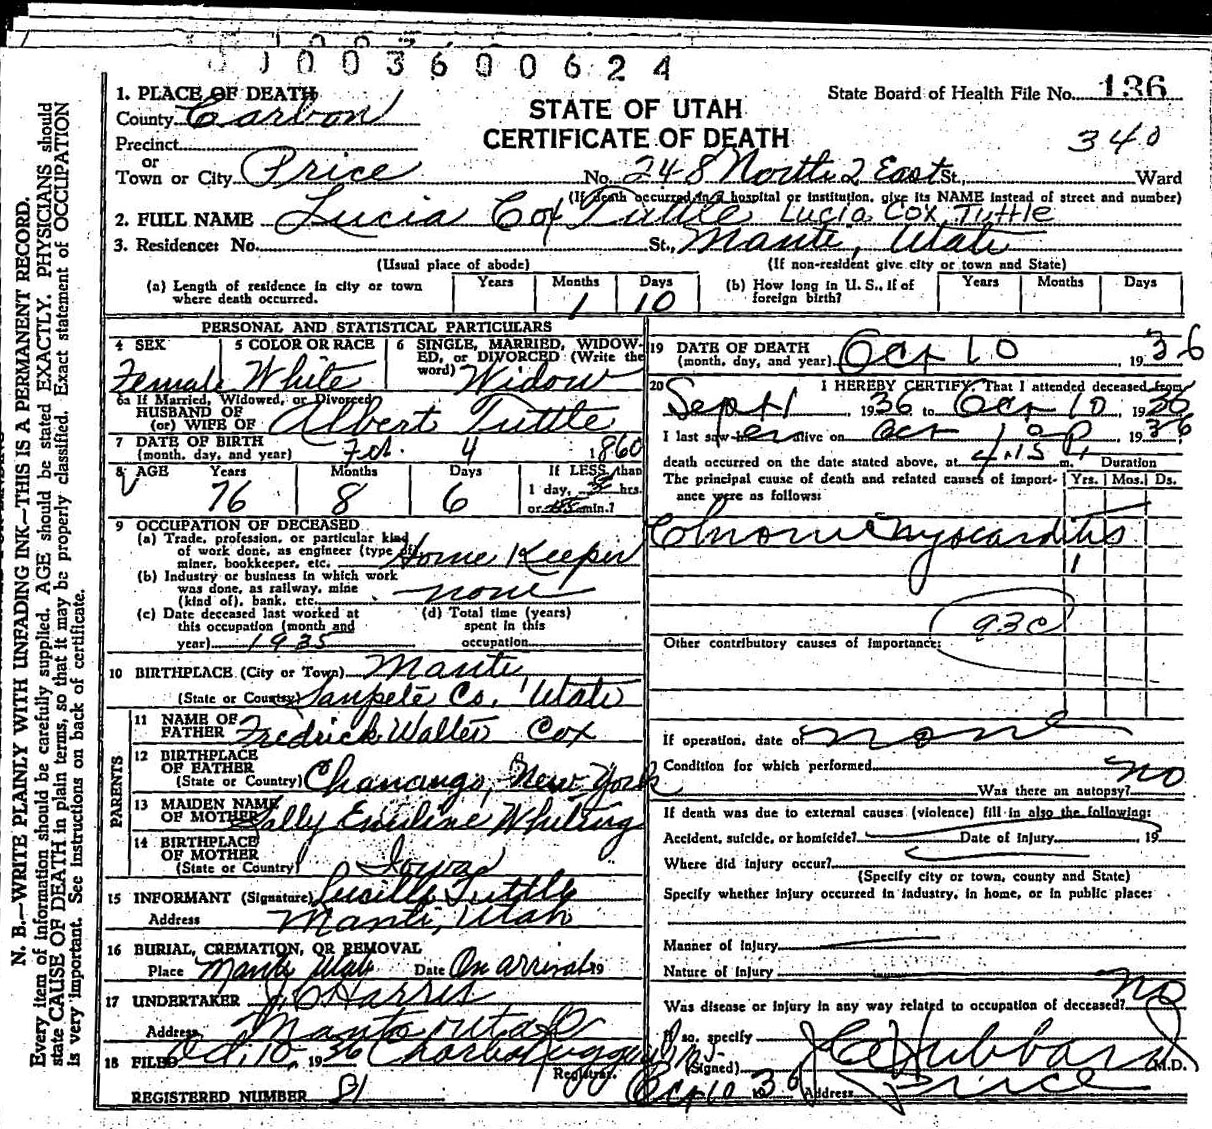 0 0 3 6 0 0 6 2 4
1. PLACE OF DEATH
State Board of Health File No. 136
STATE OF UTAH
CERTIFICATE OF DEATH
340
County Carbon
Precinct
or
Town or City Price No. 248 North 2 East St., Ward
(If death occurred in a hospital or institution, give its NAME instead of street and number)
2. FULL NAME Lucia Cox Tuttle Lucia Cox Tuttle
3. Residence: No. St., Manti, Utah
(Usual place of abode) (If non-resident give city or town and State)
(a) Length of residence in city or town where death occurred. Years Months 1 Days 10
(b) How long in U. S., if of foreign birth? Years Months Days
PERSONAL AND STATISTICAL PARTICULARS
4 SEX Female
5 COLOR OR RACE White
6 SINGLE, MARRIED, WIDOWED, or DIVORCED (Write the word) Widow
6a If Married, Widowed, or Divorced
HUSBAND OF
(or) WIFE OF Albert Tuttle
7 DATE OF BIRTH
(month, day, and year) Feb. 4 1860
8 AGE Years 76 Months 8 Days 6 If LESS than
1 day, hrs.
or min.?
9 OCCUPATION OF DECEASED
(a) Trade, profession, or particular kind
of work done, as engineer (type of
miner, bookkeeper, etc. Home Keeper
(b) Industry or business in which work
was done, as railway, mine
(kind of), bank, etc. none
(c) Date deceased last worked at
this occupation (month and
year) 1935
(d) Total time (years)
spent in this
occupation
10 BIRTHPLACE (City or Town) Manti,
(State or Country) Sanpete Co, Utah
PARENTS
11 NAME OF
FATHER Fredrick Walter Cox
12 BIRTHPLACE
OF FATHER
(State or Country) Chanango, New York
13 MAIDEN NAME
OF MOTHER Sally Emeline Whiting
14 BIRTHPLACE
OF MOTHER
(State or Country) Iowa
15 INFORMANT (Signature) Lucille Tuttle
Address Manti, Utah
16 BURIAL, CREMATION, OR REMOVAL
Place Manti Utah Date On arrival 19
17 UNDERTAKER J C Harris
Address Manti Utah
18 FILED Oct. 10, 1936 Charles Ruggeri Jr
Registrar.
REGISTERED NUMBER 81
19 DATE OF DEATH
(month, day, and year) Oct 10 1936
20 I HEREBY CERTIFY, That I attended deceased from
Sept 1, 1936 to Oct 10 1936
I last saw her alive on Oct 10, 1936
death occurred on the date stated above, at 4.15 P. m. Duration
The principal cause of death and related causes of importance were as follows: Yrs. Mos. Ds.
Chronic Myocarditis
1
93c
Other contributory causes of importance:
If operation, date of none
Condition for which performed
Was there an autopsy? no
If death was due to external causes (violence) fill in also the following:
Accident, suicide, or homicide? Date of Injury 19
Where did injury occur?
(Specify city or town, county and State)
Specify whether injury occurred in industry, in home, or in public place:
Manner of Injury
Nature of Injury
Was disease or injury in any way related to occupation of deceased? no
If so, specify
(Signed) J C Hubbard M.D.
Oct 10 1936 Address Price
N. B.—WRITE PLAINLY WITH UNFADING INK—THIS IS A PERMANENT RECORD.
Every item of information should be carefully supplied. AGE should be stated EXACTLY. PHYSICIANS should
state CAUSE OF DEATH in plain terms, so that it may be properly classified. Exact statement of OCCUPATION
is very important. See instructions on back of certificate.